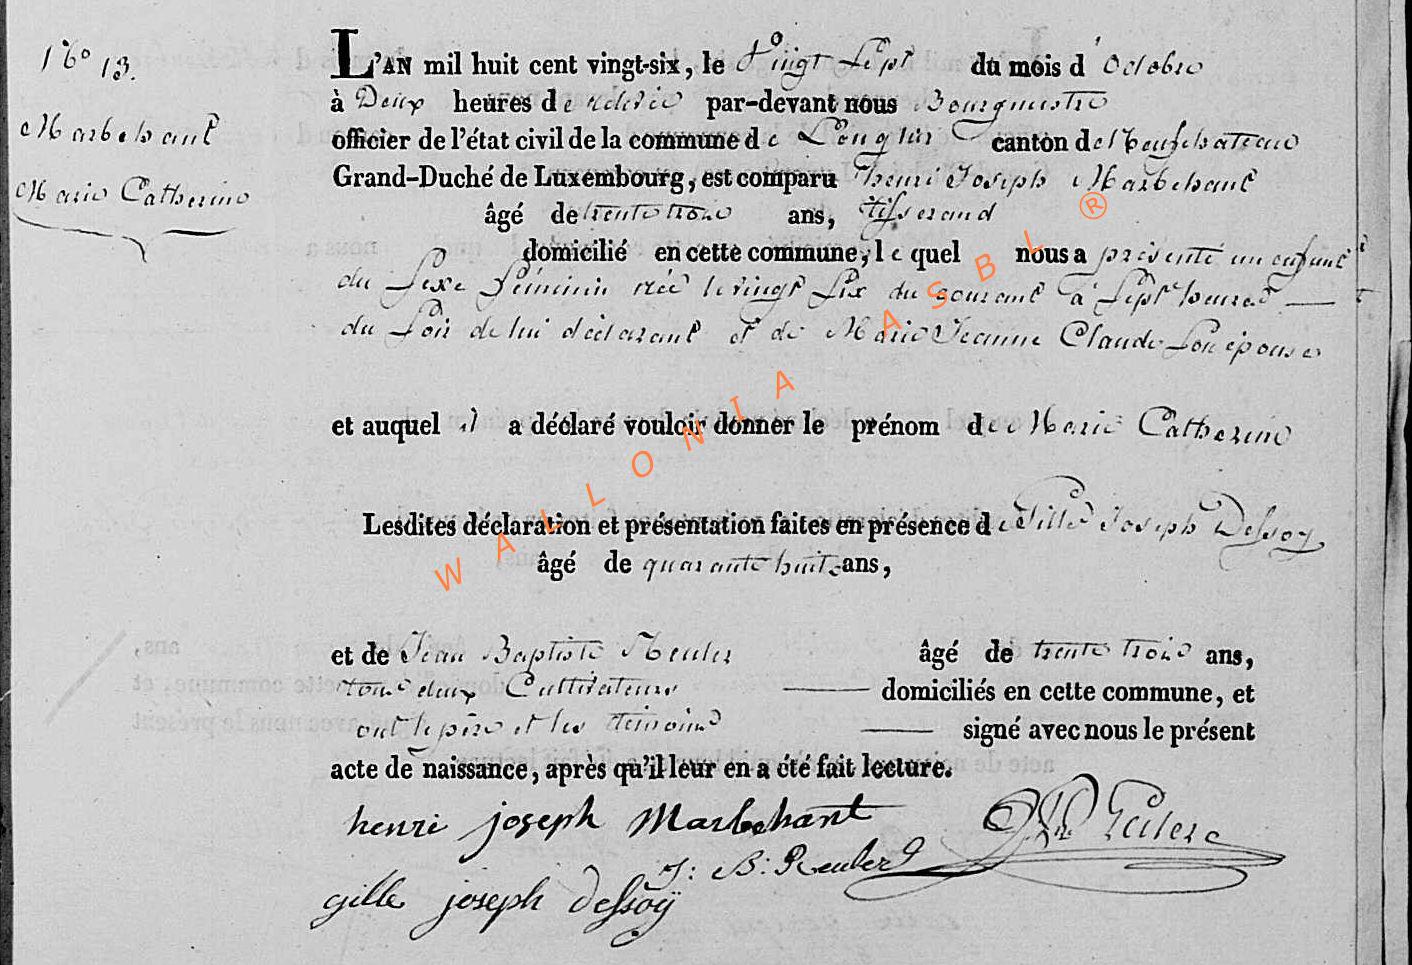 N° 13.
Marbehant
Marie Catherine
L'AN mil huit cent vingt-six, le Vingt Sept du mois d'Octobre
à Deux heures de relevée par-devant nous Bourgmestre
officier de l'état civil de la commune de Longlier canton de Neufchateau
Grand-Duché de Luxembourg, est comparu henri Joseph Marbehant
âgé de trente trois ans, tisserand
domicilié en cette commune, le quel nous a présenté un enfant
du Sexe féminin née le vingt Six du courant à Sept heures
du Soir de lui déclarant et de Marie Jeanne Claude Son épouse
et auquel il a déclaré vouloir donner le prénom de Marie Catherine
Lesdites déclaration et présentation faites en présence de Gille Joseph Dessoy
âgé de quarante huit ans,
et de Jean Baptiste Reuler âgé de trente trois ans,
tous deux Cultivateurs domiciliés en cette commune, et
ont le père et les témoins signé avec nous le présent
acte de naissance, après qu'il leur en a été fait lecture.
henri joseph Marbehant
J: B: Reuler
gille joseph dessoÿ
WALLONIA ASBL ®